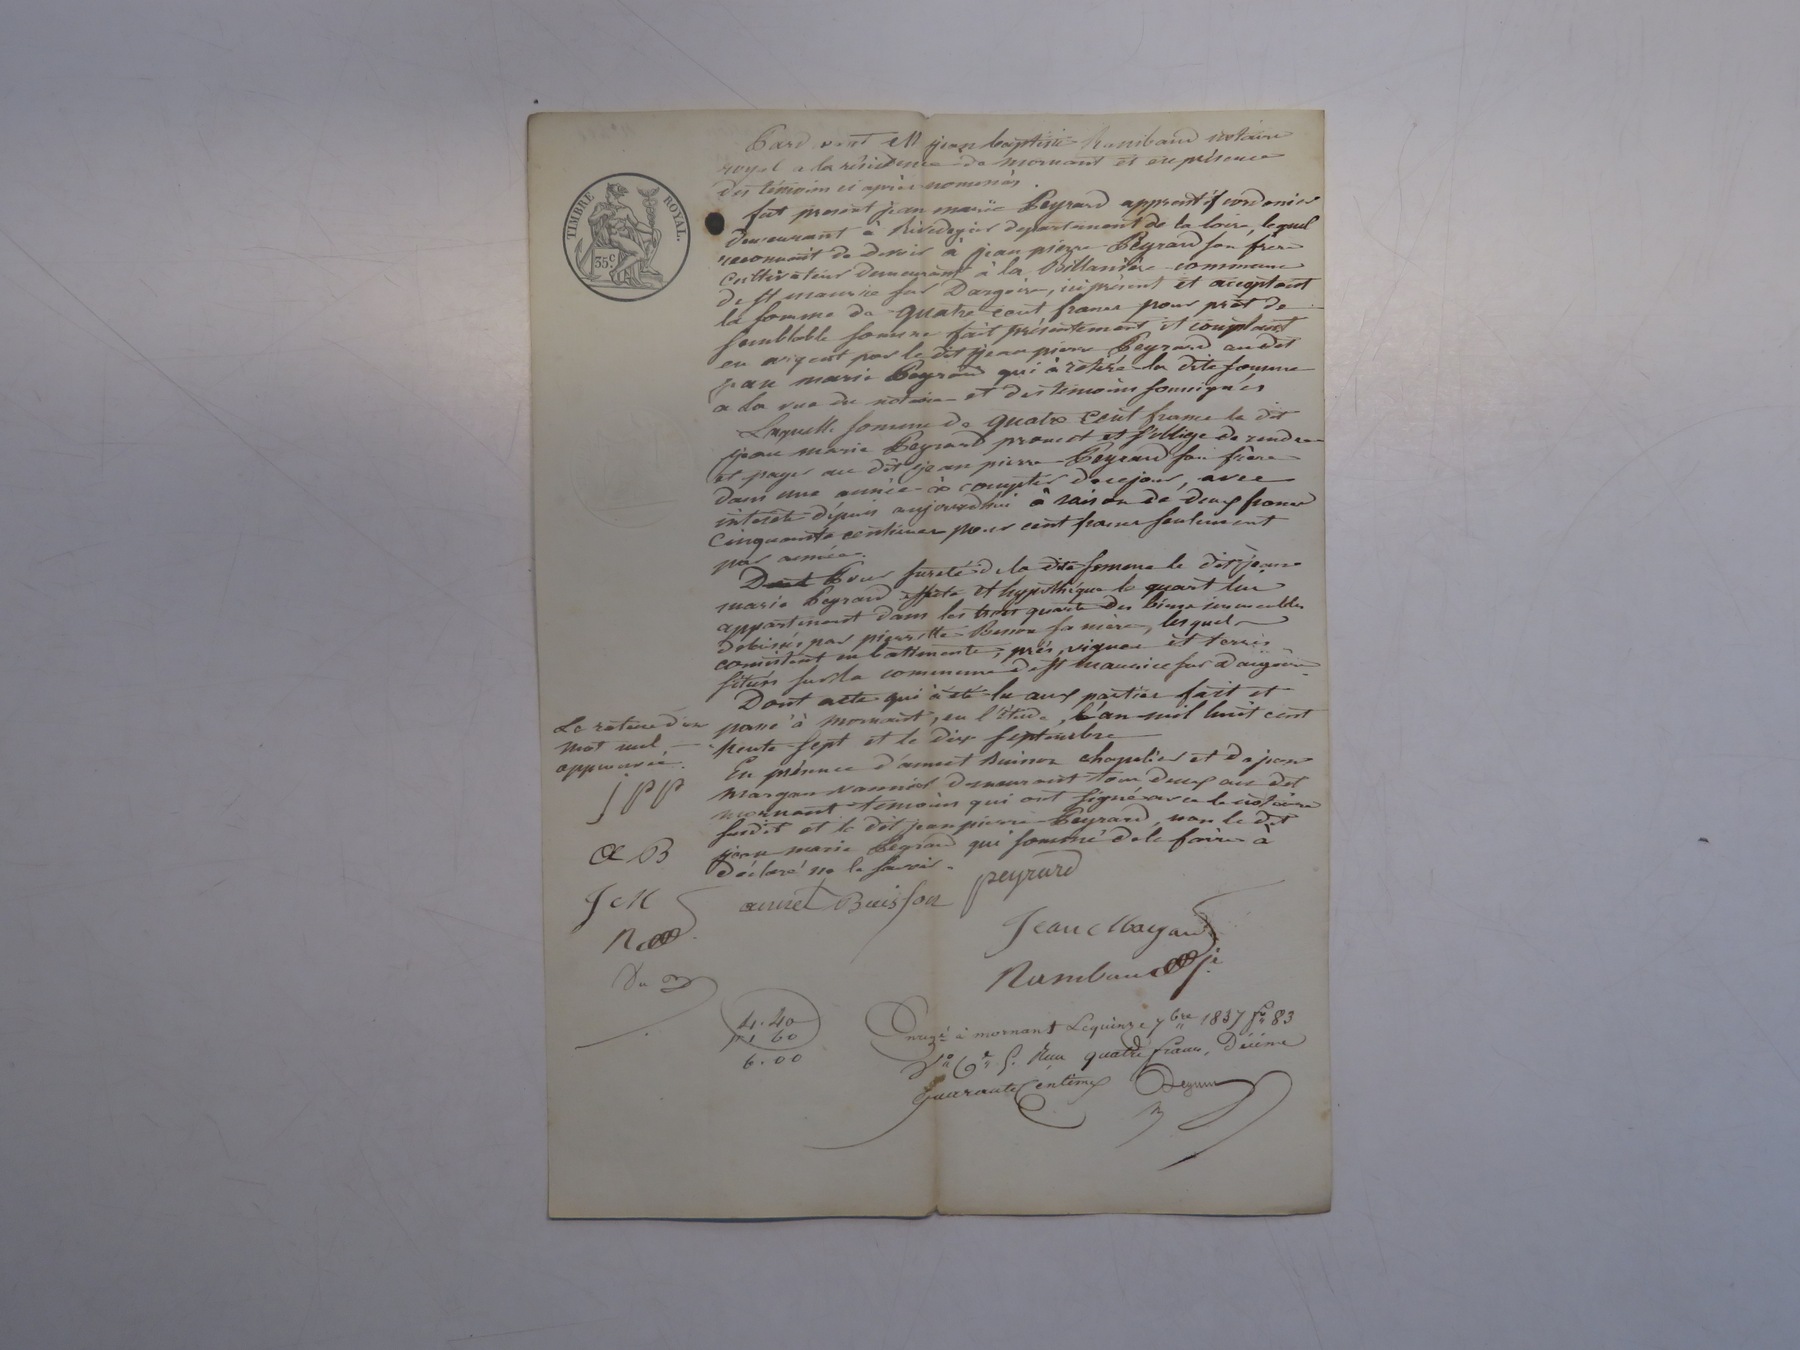 TIMBRE ROYAL.
35 c.
Pardevant Me jean baptiste Rambaud notaire
royal a la résidence de mornant et en présence
des témoins ci après nommés.
fut present jean marie Peyrard apprentif cordonier
demeurant à Rivedegier departement de la loire, lequel
reconnait de devoir à jean pierre Peyrard son frere
cultivateur demeurant à la Billanière commune
de st maurice sur Dargoire, ci présent et acceptant
la somme de quatre cent francs pour prêt de
semblable somme fait présentement et comptant
en argent par le dit jean pierre Peyrard audit
jean marie Peyrard qui à retiré la dite somme
a la vue du notaire et des témoins soussignés
Laquelle somme de quatre cent francs le dit
jean marie Peyrard promet et s'oblige de rendre
et payer au dit jean pierre Peyrard son frère
dans une année à compter de ce jour, avec
intérêts depuis aujourdhui à raison de deux francs
cinquante centimes pour cent francs seulement
par année.
Dont Pour sureté de la dite somme le dit jean
marie Peyrard affecte et hypothéque le quart lui
appartenant dans les trois quarts des biens immeubles
délaissés par pierrette Besson sa mère, lesquels
consistent en batiments, prés, vignes et terres
situés sur la commune de st maurice sur Dargoire
Dont acte qui à été lu aux parties fait et
passé à mornant, en l'étude, l'an mil huit cent
trente sept et le dix septembre
En présence d'annet Buisson chapelier et de jean
Margan vannier demeurant tous deux au dit
mornant temoins qui ont signé avec le notaire
susdit et le dit jean pierre Peyrard, non le dit
jean marie Peyrard qui sommé de le faire à
déclaré ne le savoir.
La rature d'un
mot nul
approuvée.
J P P
a B
J M
R
annet Buisson peyrard
Jean Margan
Rambaud
4.40
1.60
6.00
Enregé à mornant Le quinze 7bre 1837 fo 83
Vo Ce 5. Reçu quatre francs, Décime
quarante Centimes